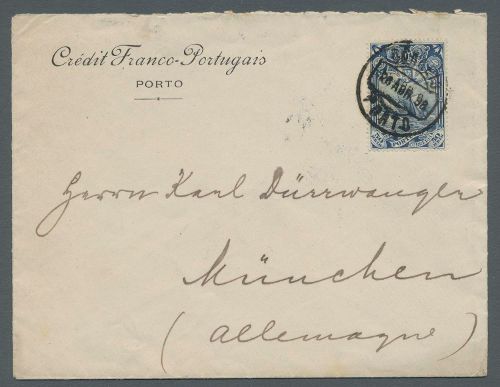 Crédit Franco-Portugais
PORTO
PORTO
Herrn Karl Dürrwanger
München
(Allemagne)